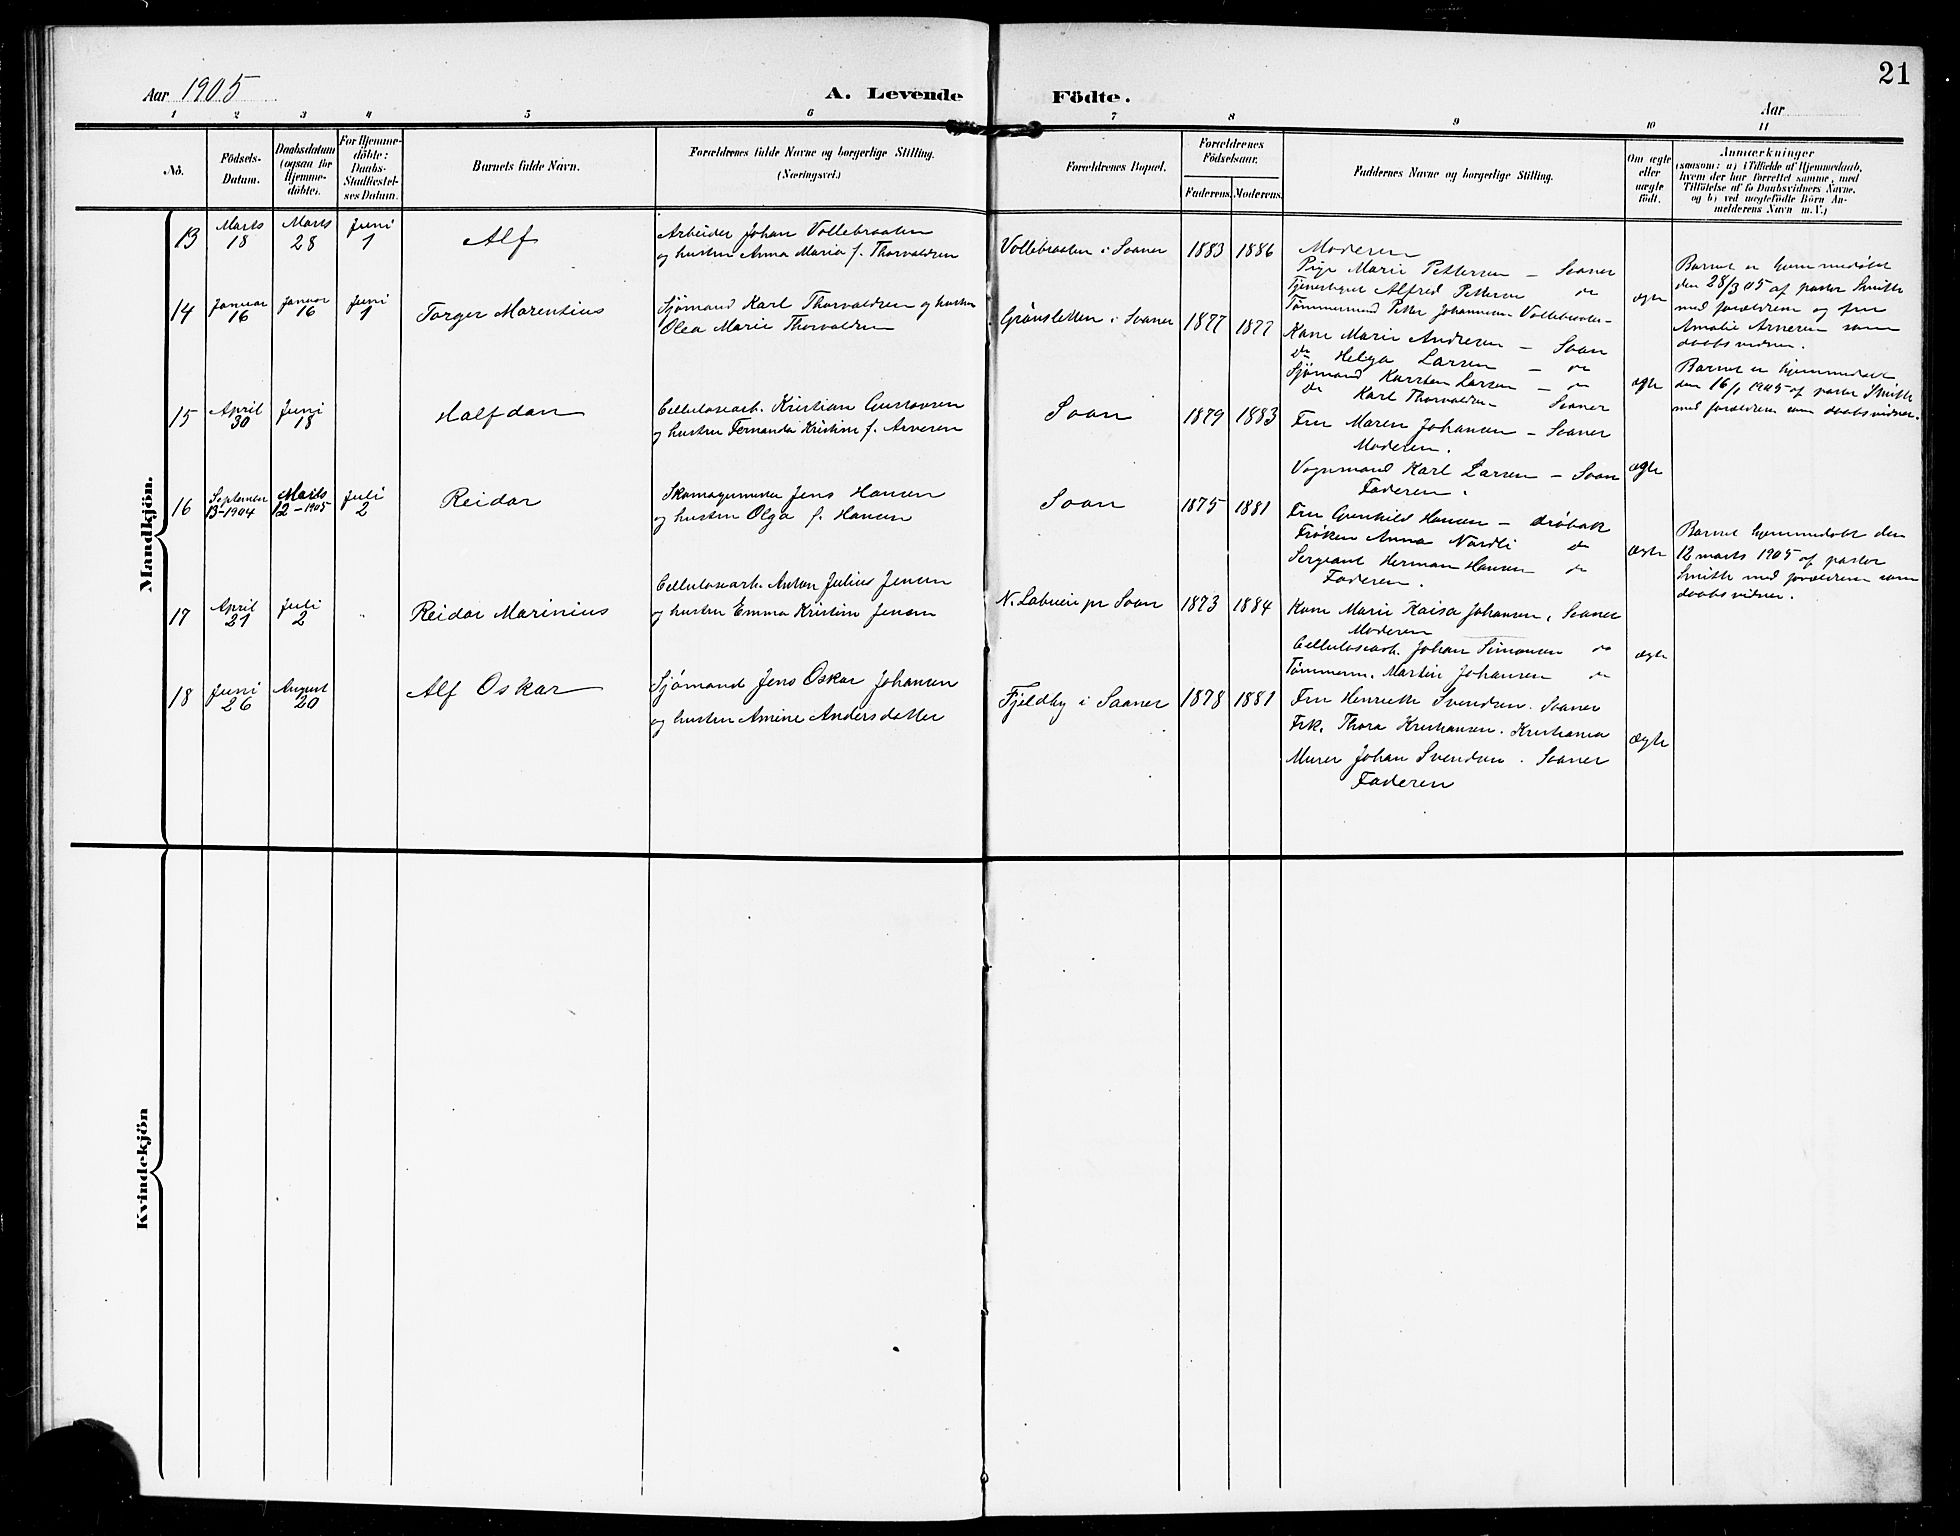 21
Aar 1905
A. Levende Födte.
Aar
1 2 3 4 5 6 7 8 9 10 11
No.
Födsels-
Datum.
Daabsdatum
(ogsaa for
Hjemme-
döbte).
For Hjemme-
döbte:
Daabs-
Stadfæstel-
ses Datum.
Barnets fulde Navn.
Forældrenes fulde Navne og borgerlige Stilling.
(Næringsvei.)
Forældrenes Bopæl.
Forældrenes
Födselsaar.
Faderens. Moderens.
Faddernes Navne og borgerlige Stilling.
Om ægte
eller
uægte
født.
Anmærkninger
(saasom: a) i Tilfælde af Hjemmedaab,
hvem der har forrettet samme, med
Tilföielse af to Daabsvidners Navne.
og b) ved uægtefödte Börn An-
melderens Navn m. V.)
Mandkjön.
13
Marts
18
Marts
28
Juni
1
Alf
Arbeider Johan Vollebraaten
og hustru Anna Maria f. Thorvaldsen
Vollebraaten i Soaner
1883 1886
Moderen
Pige Marie Pettersen – Soaner
Tjenestegut Alfred Pettersen do
Tømmermand Petter Johannesen Vollebraaten
ægte
Barnet er hjemmedøbt
den 28/3 05 af pastor Smith
med forældrene og fru
Amalie Arnesen som
daabsvidner.
14
Januar
16
Januar
16
Juni
1
Torger Marentius
Sjømand Karl Thorvaldsen og hustru
Olea Marie Thorvaldsen
Grønsletten i Soaner
1877 1877
Kone Marie Andersen – Soon
do Helga Larsen – do
Sjømand Karsten Larsen – do
do Karl Thorvaldsen Soaner
ægte
Barnet er hjemmedøbt
den 16/1 1905 af pastor Smith
med forældrene som daabsvidner.
15
April
30
Juni
18
Halfdan
Cellulosearb. Kristian Gustavsen
og hustru Fernanda Kristine f. Arvesen
Soon
1879 1883
Fru Maren Johansen – Soaner
Moderen.
Vognmand Karl Larsen – Soon
Faderen.
ægte
16
September
13–1904
Marts
12–1905
Juli
2
Reidar
Skomagermester Jens Hansen
og hustru Olga f. Hansen
Soon
1875 1881
Fru Gunhild Hansen – Drøbak
Frøken Anna Nordli do
Sergeant Herman Hansen do
Faderen.
ægte
Barnet hjemmedøbt den
12 marts 1905 af pastor
Smith med forældrene som
daabsvidner.
17
April
21
Juli
2
Reidar Marinius
Celluloseark. Anton Julius Jensen
og hustru Emma Kristine Jensen
N. Labueie pr Soon
1873 1884
Kone Marie Kaisa Johansen, Soaner
Moderen
Celluloseark. Johan Simonsen do
Tømmerm. Martin Johansen do
ægte
18
Juni
26
August
20
Alf Oskar
Sjømand Jens Oskar Johansen
og hustru Amine Andersdatter
Fjeldby i Saaner
1878 1881
Fru Henriette Svendsen. Soaner
Frk. Thora Kristiansen. Kristiania
Murer Johan Svendsen. Soaner
Faderen
ægte
Kvindekjön